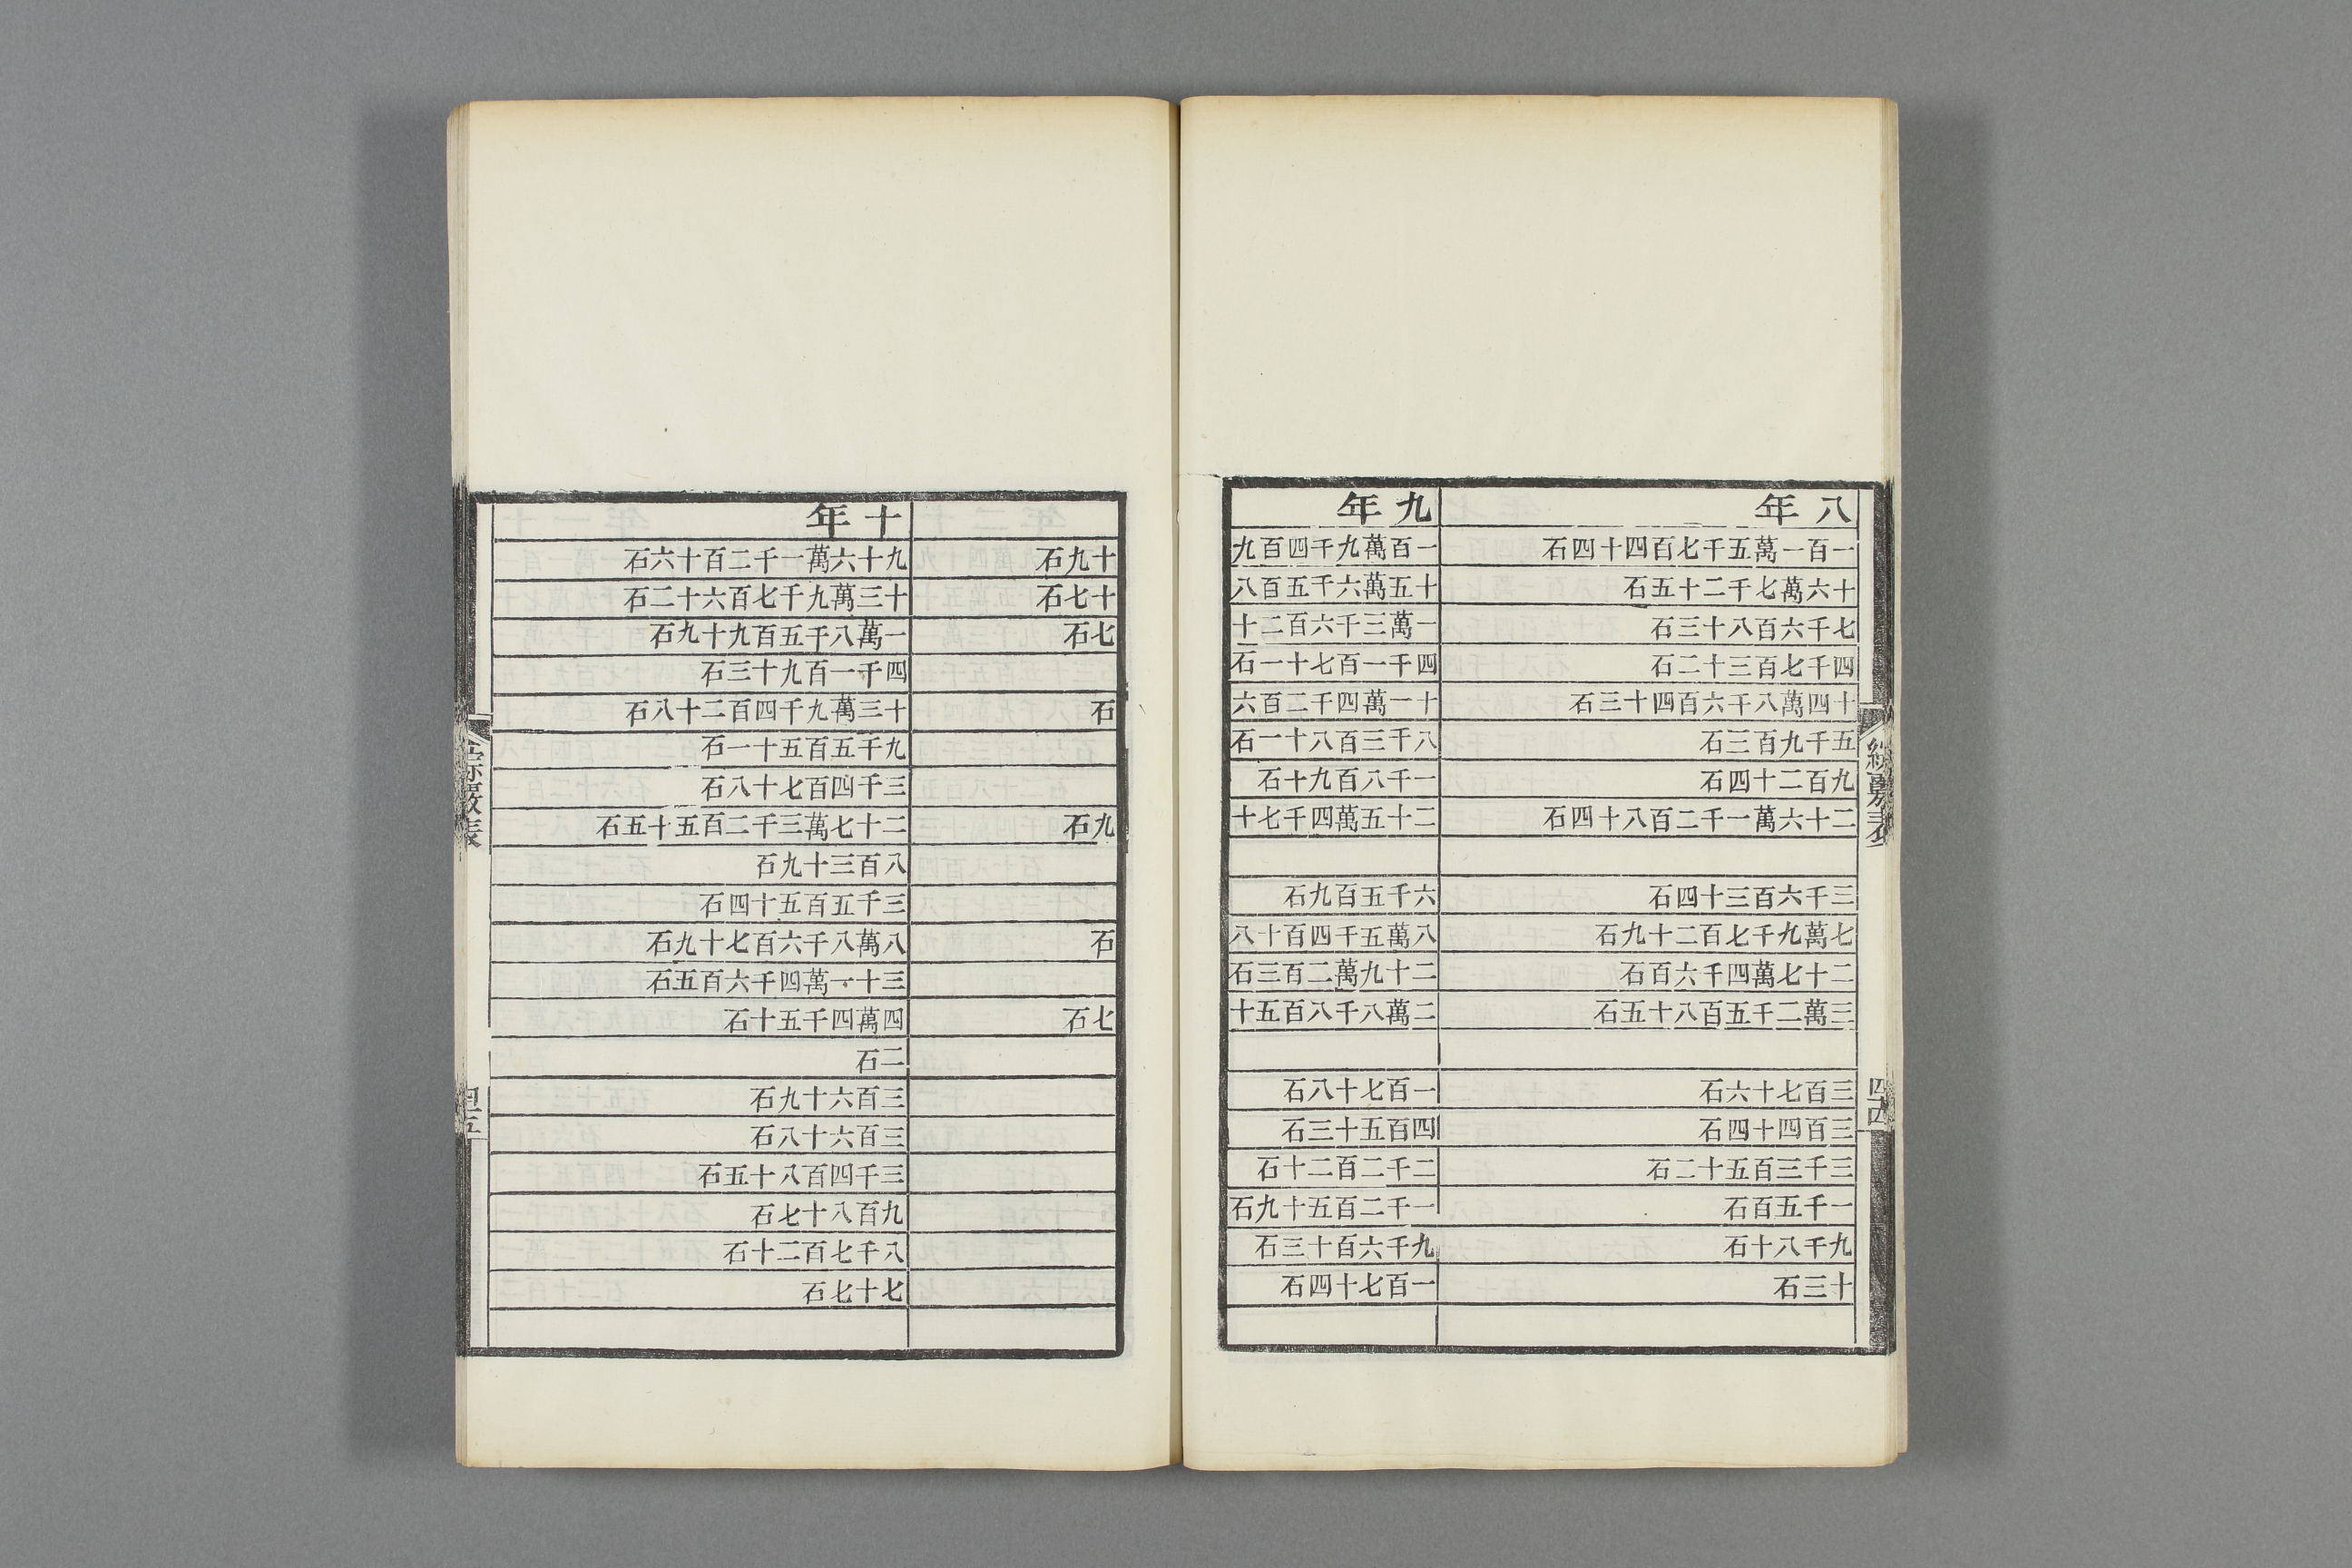 綜覈表
四四
八年
一百一萬五千七百四十四石
十六萬七千二十五石
七千六百八十三石
四千七百三十二石
十四萬八千六百四十三石
五千九百三石
九百二十四石
二十六萬一千二百八十四石
三千六百三十四石
七萬九千七百二十九石
二十七萬四千六百石
三萬二千五百八十五石
三百七十六石
三百四十四石
三千三百五十二石
一千五百石
九千八十石
十三石
九年
一百萬九千四百九
十五萬六千五百八
一萬三千六百二十
四千一百七十一石
十一萬四千二百六
八千三百八十一石
一千八百九十石
二十五萬四千七十
六千五百九石
八萬五千四百十八
二十九萬二百三石
二萬八千八百五十
一百七十八石
四百五十三石
二千二百二十石
一千二百五十九石
九千六百十三石
一百七十四石
十九石
十七石
七石
石
九石
石
七石
十年
九十六萬一千二百十六石
十三萬九千七百六十二石
一萬八千五百九十九石
四千一百九十三石
十三萬九千四百二十八石
九千五百五十一石
三千四百七十八石
二十七萬三千二百五十五石
八百三十九石
三千五百五十四石
八萬八千六百七十九石
三十一萬四千六百五石
四萬四千五十石
二石
三百六十九石
三百六十八石
三千四百八十五石
九百八十七石
八千七百二十石
七十七石
綜覈表
四五